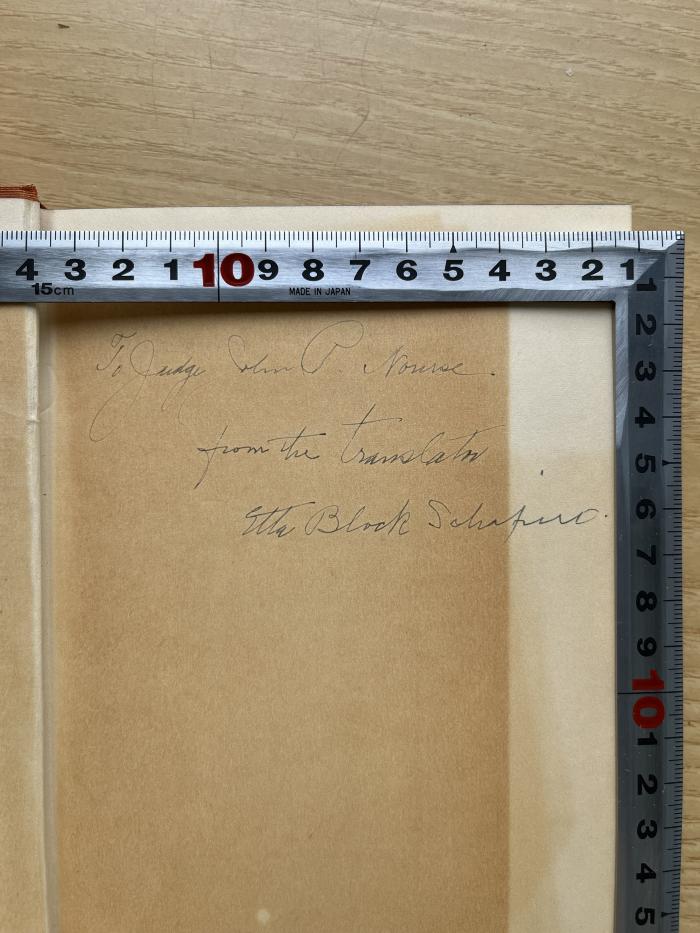 4 3 2 1 10 9 8 7 6 5 4 3 2 1
15cm MADE IN JAPAN
1 2 3 4 5 6 7 8 9 10 1 2 3 4 5
To Judge John P. Nourse.
from the translator
Etta Block Schapiro.